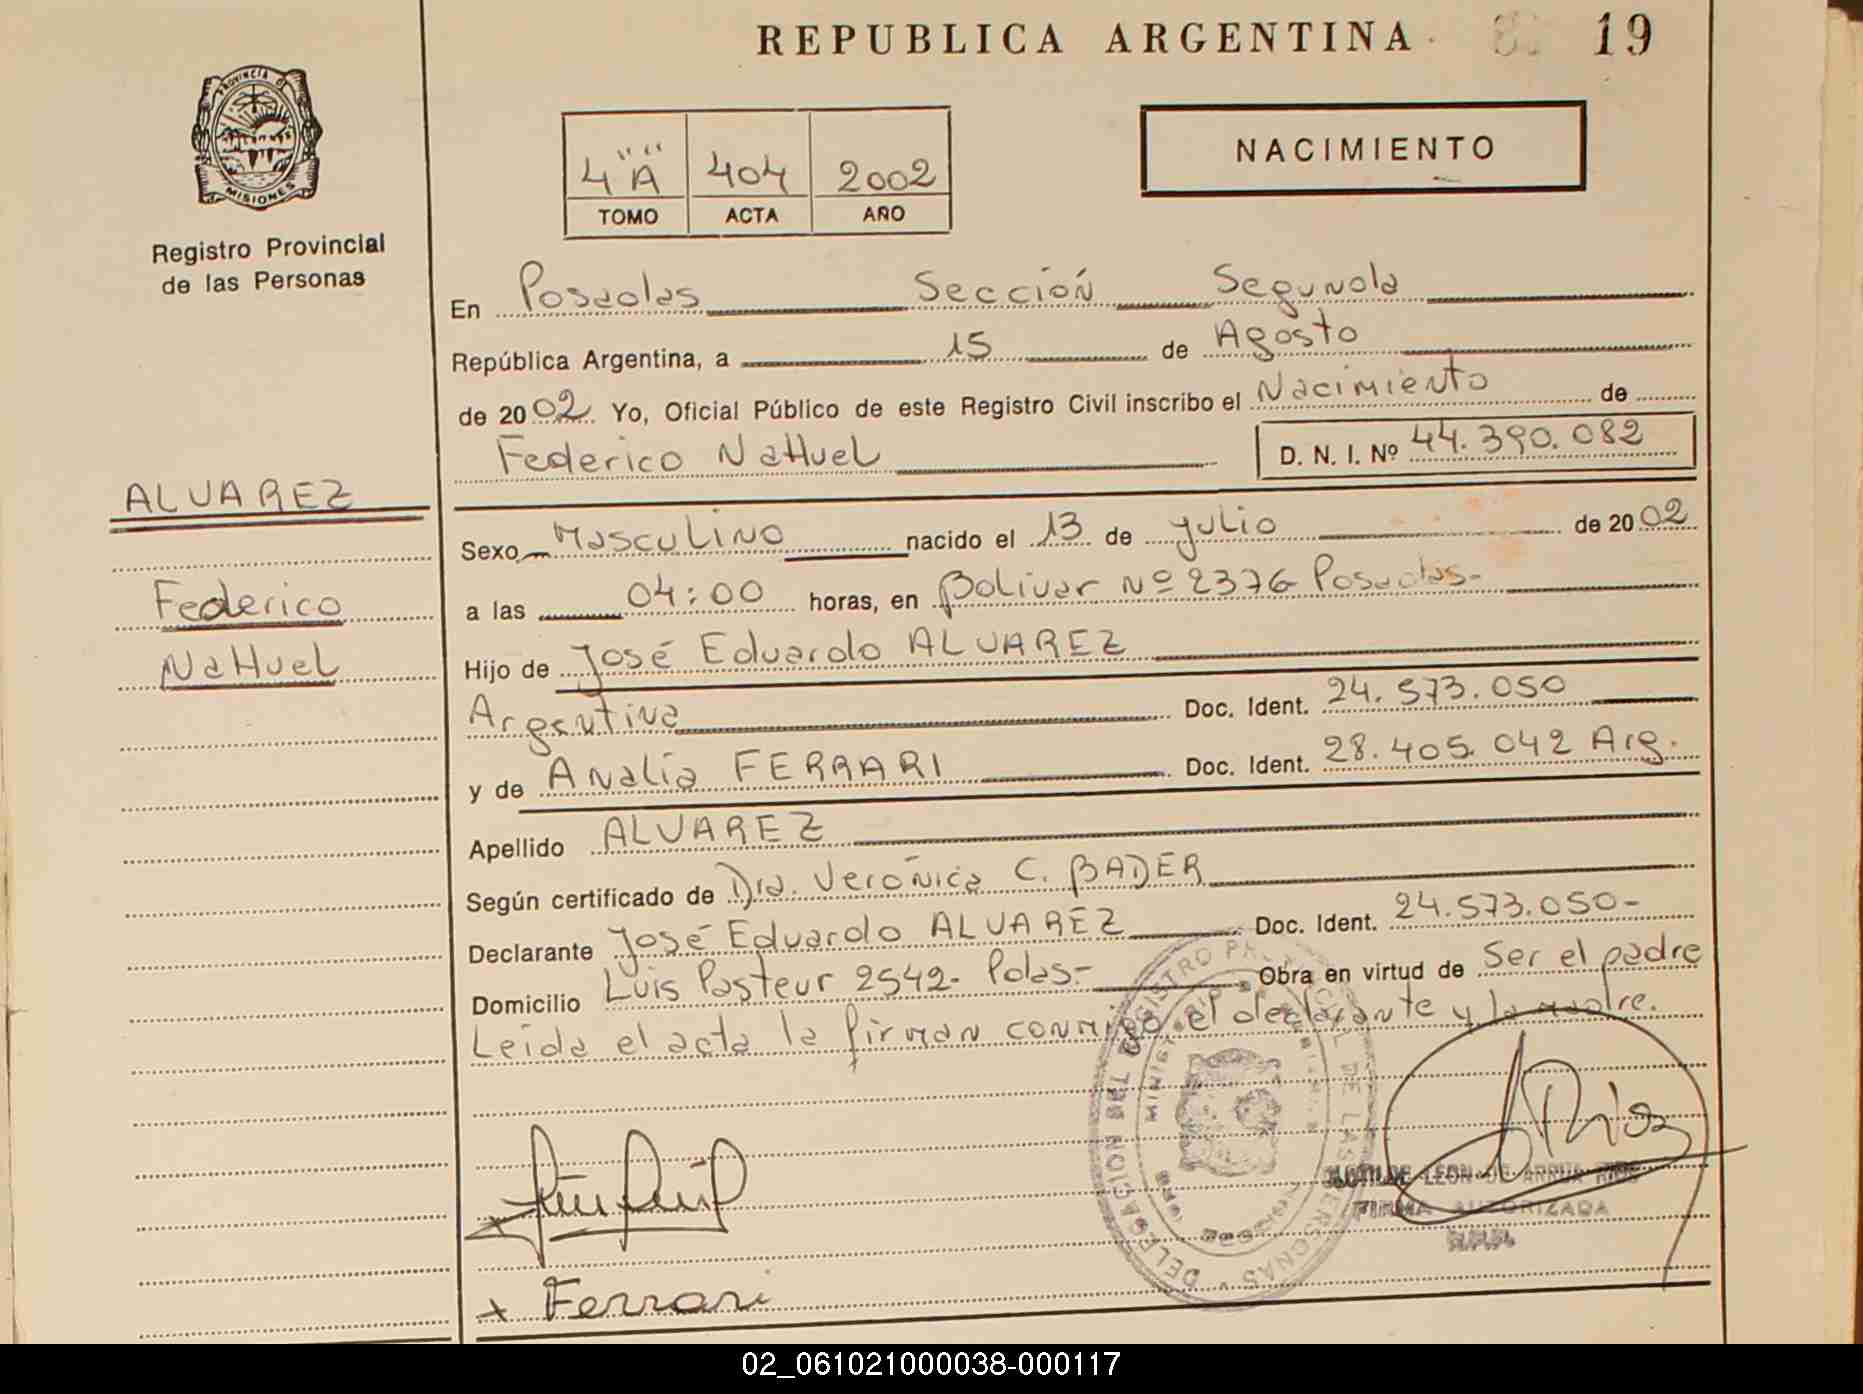 REPUBLICA ARGENTINA
19
PROVINCIA DE MISIONES
Registro Provincial
de las Personas
4 "A" 404 2002
TOMO ACTA AÑO
NACIMIENTO
En Posadas Sección Segunda
República Argentina, a 15 de Agosto
de 2002 Yo, Oficial Público de este Registro Civil inscribo el Nacimiento de
Federico NaHuel D. N. I. Nº 44.390.082
ALVAREZ
Federico
NaHuel
Sexo Masculino nacido el 13 de julio de 2002
a las 04:00 horas, en Bolivar Nº 2376 Posadas-
Hijo de José Eduardo ALVAREZ
Argentina Doc. Ident. 24.573.050
y de Analía FERRARI Doc. Ident. 28.405.042 Arg.
Apellido ALVAREZ
Según certificado de Dra. Verónica C. BADER
Declarante José Eduardo ALVAREZ Doc. Ident. 24.573.050-
Domicilio Luis Pasteur 2542- Pdas.- Obra en virtud de Ser el padre
Leída el acta la firman conmigo el declarante y la madre.
REGISTRO PROVINCIAL DE LAS PERSONAS
DELEGACION
MATILDE LEON DE ARRUA RIOS
FIRMA AUTORIZADA
R.P.P.
x Ferrari
02_061021000038-000117